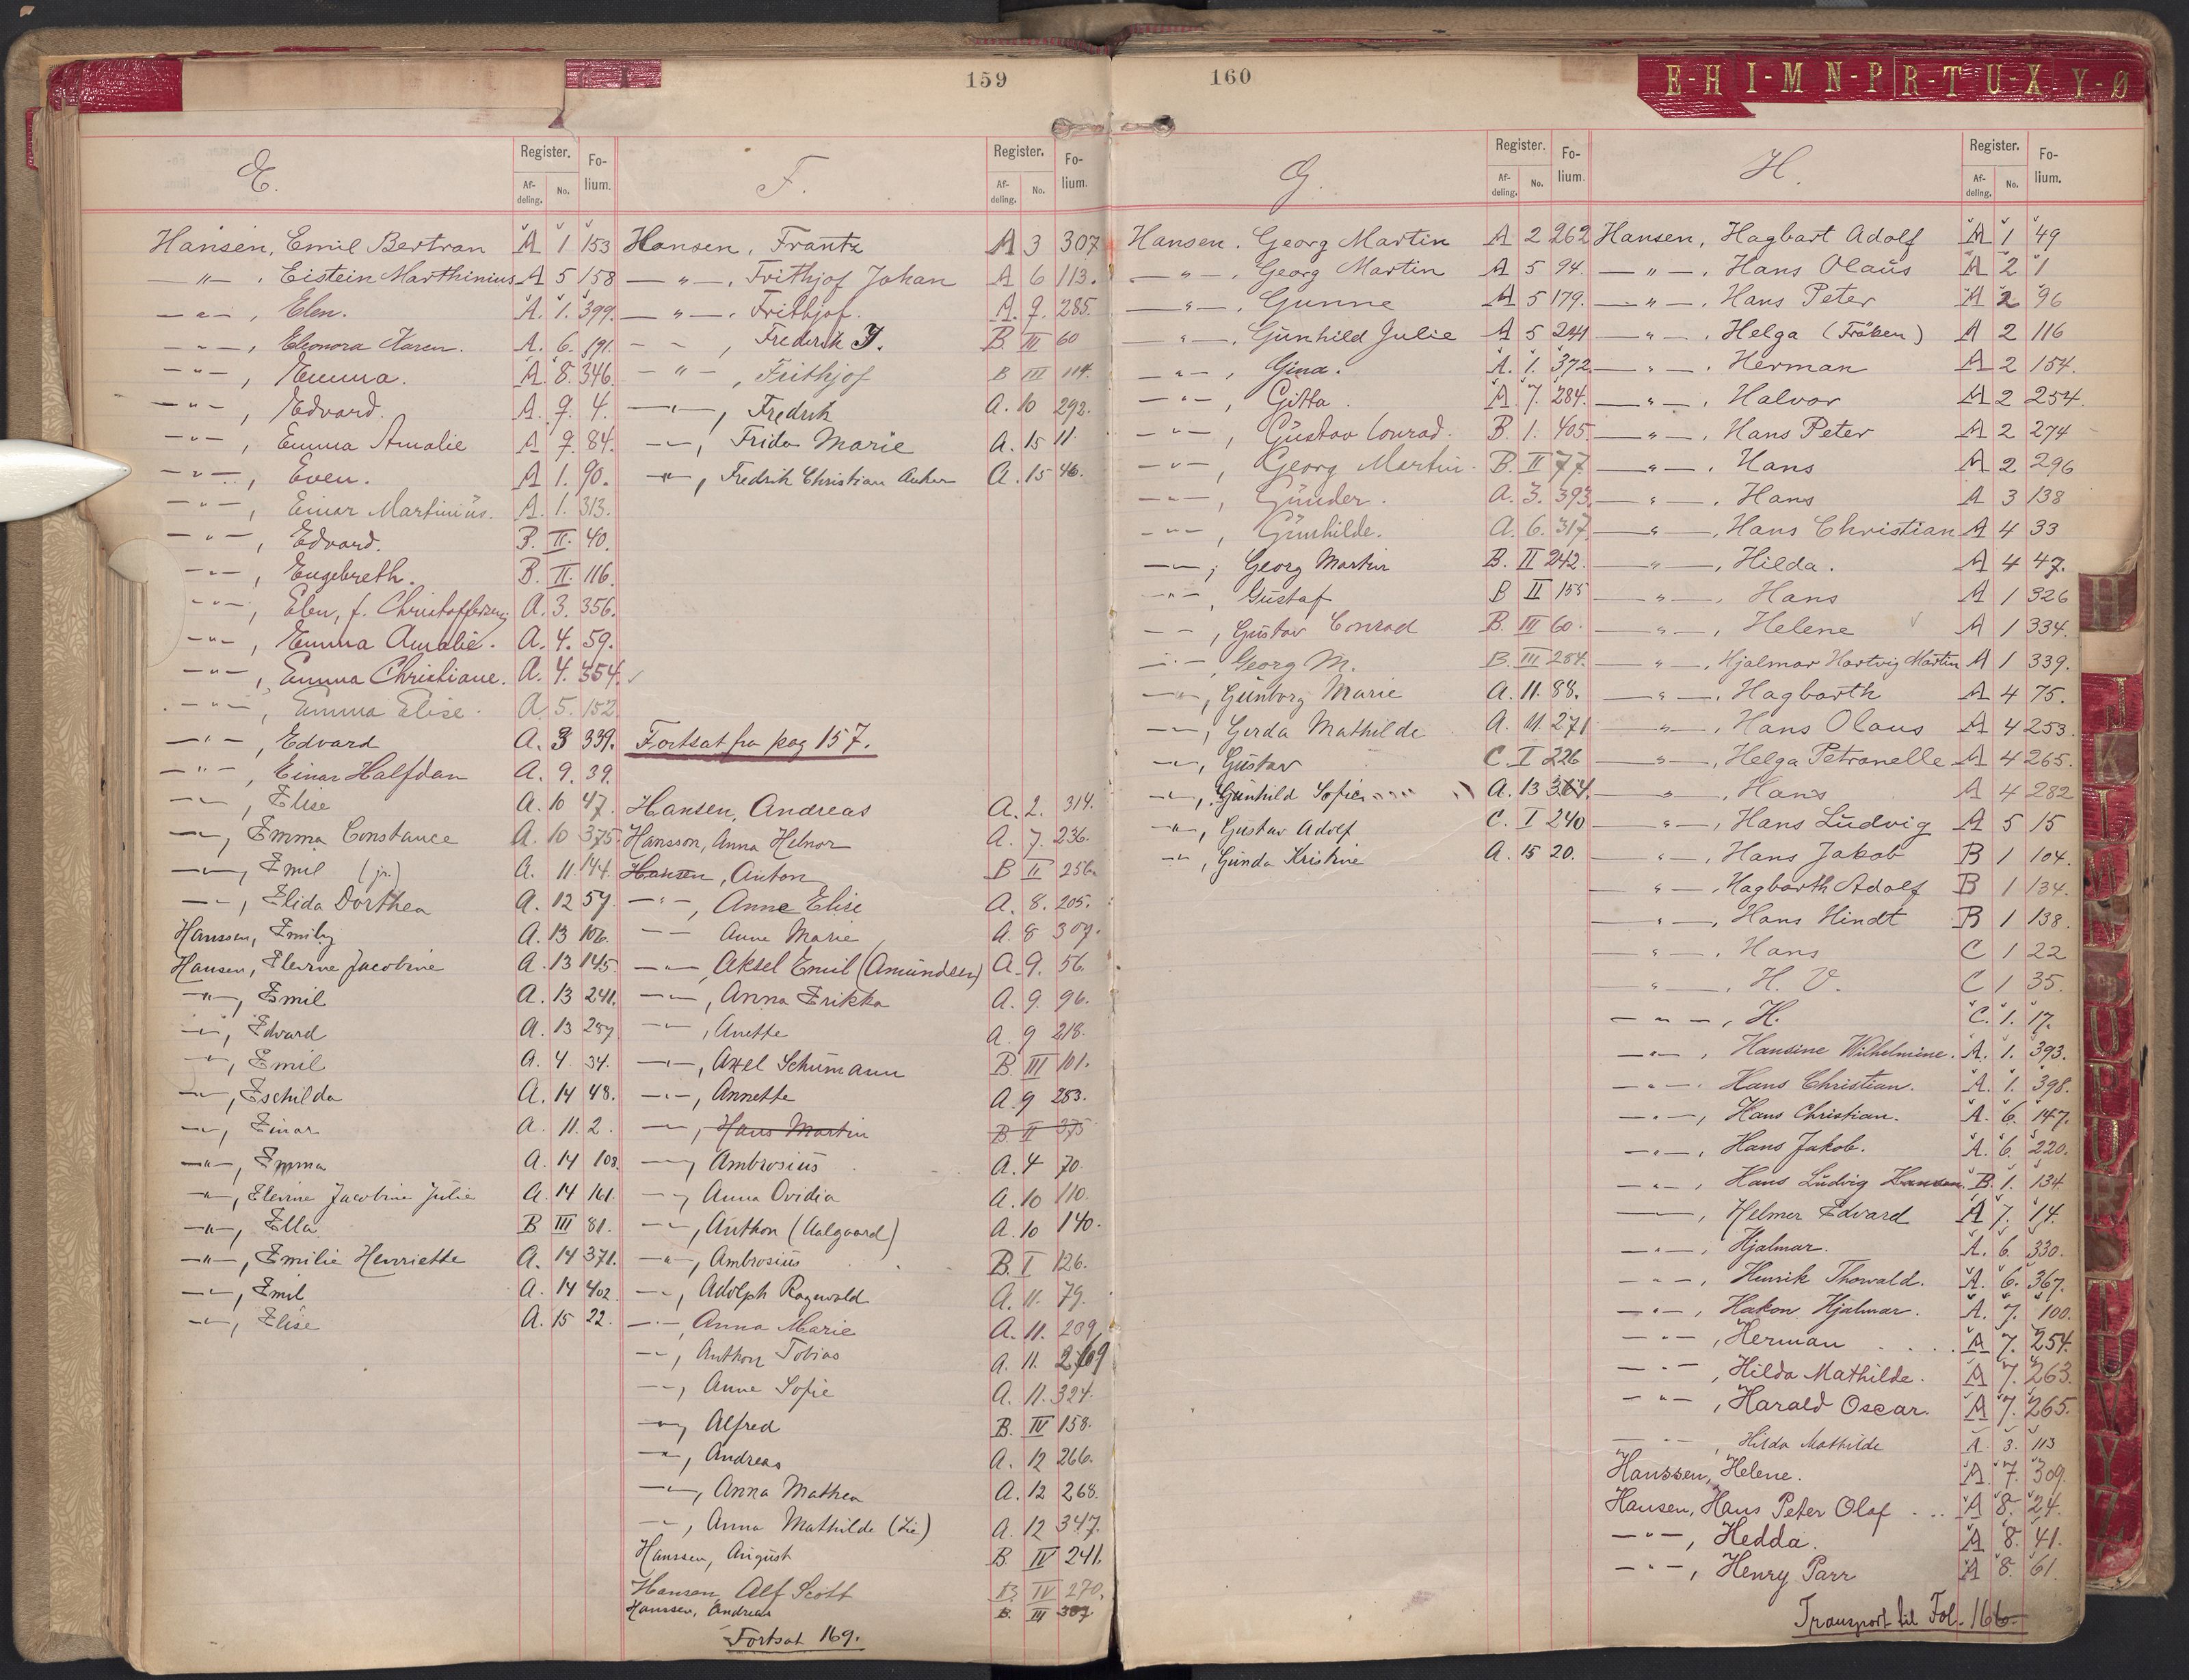 159
E.
Register. Fo-
Af- No. lium.
deling.
Hansen, Emil Bertran A 1 153
—"—, Eistein Marthinius A 5 158
—"—, Elen. A. 1. 399.
—"—, Eleonora Karen. A. 6. 191.
—"—, Emma. A. 8. 346.
—"—, Edvard. A. 9. 4.
—"—, Emma Amalie A 9. 84.
—"—, Even. A 1. 90.
—"—, Einar Martinius. A. 1. 313.
—"—, Edvard. B. II. 40.
—"—, Engebreth. B. II. 116.
—"—, Elen, f. A. 3. 356.
—"—, Emma Amalie. A. 4. 59.
—"—, Emma Christiane. A. 4. 354.
—"—, Emma Elise. A. 5. 152
—"—, Edvard A. 3 339.
—"—, Einar Halfdan A. 9. 39.
—"—, Elise A. 10 47.
—"—, Emma Constance A. 10 375.
—"—, Emil (jr.) A. 11. 144.
—"—, Elida Dorthea A. 12 57
Hanssen, Emily A. 13 106.
Hansen, Elevine Jacobine A. 13 145
—"—, Emil A. 13 241.
—"—, Edvard A. 13 257
—"—, Emil A. 4 34.
—"—, Eschilda A. 14 48.
—"—, Einar A. 11. 2.
—"—, Emma A. 14 108.
—"—, Elevine Jacobine Julie A. 14 161.
—"—, Ella B III 81.
—"—, Emilie Henriette A. 14 371.
—"—, Emil A. 14 402
—"—, Elise A. 15 22.
F.
Register. Fo-
Af- No. lium.
deling.
Hansen, Frantz A 3 307
—"—, Frithjof Johan A 6 113.
—"—, Frithjof. A. 7. 285.
—"—, Frederik J. B. III 60
—"—, Frithjof B III 114.
—"—, Fredrik A. 10 292.
—"—, Frida Marie A. 15 11.
—"—, Fredrik Christian Anker A. 15 46.
Fortsat fra pag 157.
Hansen, Andreas A. 2. 314.
Hansson, Anna Helnor A. 7. 236.
Hansen, Anton B II 256.
—"—, Anne Elise A. 8. 205.
—"— Anne Marie A. 8 307.
—"—, Aksel Emil (Amundsen) A. 9. 56.
—"—, Anna Erikka A. 9. 96.
—"—, Anette A. 9 218.
—"—, Axel Schumann B III 101.
—"—, Annette A. 9 253.
—"—, Hans Martin B. II 375
—"—, Ambrosius A. 4 70.
—"—, Anna Ovidia A. 10 110.
—"—, Anthon (Aalgaard) A. 10 140.
—"—, Ambrosius B. I 126.
—"—, Adolph Ragnvald A. 11. 79.
—"—, Anna Marie A. 11. 209
—"—, Anthon Tobias A. 11.
—"—, Anne Sofie A. 11. 324.
—"—, Alfred B. IV 158.
—"—, Andreas A. 12 266.
—"—, Anna Mathea A. 12 268.
—"—, Anna Mathilde (Lie) A. 12 347.
Hanssen, August B IV 241.
Hansen, Alf Scott B. IV 270.
Hanssen, Andreas B. III 307
Fortsat 169.
160
G.
Register. Fo-
Af- No. lium.
deling.
Hansen. Georg Martin A 2 262
—"—. Georg Martin A 5 94.
—"—. Gunne A 5 179.
—"—. Gunhild Julie A 5 241
—"—, Gina. A. 1. 372.
—"—, Gitta. A. 7. 284.
—"—, Gustav Conrad. B. 1. 405.
—"—, Georg Martin. B. II 77
—"—, Gunder. A. 3. 393.
—"—, Gunhilde. A. 6. 317.
—"—, Georg Martin B. II 242.
—"—, Gustaf B II 155
—"—, Gustav Conrad B. III 60.
—"— Georg M. B. III 284.
—"—, Gunborg Marie A. 11. 88.
—"—, Gerda Mathilde A. 11. 271
—"—, Gustav C. I 226
—"—, Gunhild Sofie A. 13 364.
—"—, Gustav Adolf C. I 240
—"—, Gunda Kristine A. 15 20.
H.
Register. Fo-
Af- No. lium.
deling.
Hansen, Hagbart Adolf A 1 49
—"—, Hans Olaus A 2 1
—"—, Hans Peter A 2 96
—"—, Helga (Fröken) A 2 116
—"—. Herman A 2 154.
—"—. Halvor A 2 254.
—"—, Hans Peter A 2 274
—"—. Hans A 2 296
—"—. Hans A 3 138
—"—, Hans Christian A 4 33
—"—, Hilda. A 4 47.
—"—, Hans A 1 326
—"—, Helene A 1 334.
—"—, Hjalmar Hartvig Martin A 1 339.
—"—. Hagbarth A 4 75.
—"—, Hans Olaus A 4 253.
—"—, Helga Petronelle A 4 265.
—"—, Hans A 4 282
—"—, Hans Ludvig A 5 15
—"—, Hans Jakob B 1 104.
—"—, Hagbarth Adolf B 1 134.
—"—, Hans Hindt B 1 138.
—"—. Hans C 1 22
—"—, H. V. C 1 35.
—"—, H. C. 1. 17.
—"—, Hansine Wilhelmine. A. 1. 393.
—"—. Hans Christian. A. 1. 398.
—"—, Hans Christian. A. 6. 147.
—"—, Hans Jakob. A. 6. 220.
—"—, Hans Ludvig Hansen. B. 1. 134
—"—, Helmer Edvard A 7. 14.
—"—, Hjalmar. A. 6. 330.
—"—, Henrik Thorvald. A. 6. 367.
—"—, Hakon Hjalmar. A. 7. 100.
—"—, Herman A 7. 254.
—"—, Hilda Mathilde. A 7. 263.
—"—, Harald Oscar. A 7. 265.
—"—, Hilda Mathilde A. 3. 113
Hanssen, Helene. A. 7. 309.
Hansen, Hans Peter Olaf A 8. 24.
—"—, Hedda. A 8. 41.
—"—, Henry Parr A 8. 61.
Transport til Fol. 166.
E-H I-M N-P R-T U-X Y-Ø